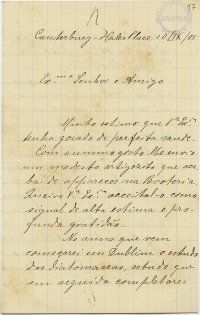 17
Canterbury - Hales Place 10/IX/05
Ex.mo Senhor e Amigo
Muito estimo que V.ª Ex.ª
tenha gozado de perfeita saude.
Com summo gosto lhe
um modesto artiguito que aca-
ba de apparecer na Broteria.
V.ª Ex.ª acceital-o como
signal de alta estima e pro-
funda gratidão.
No anno que vem
começarei em Dublim o estudo
das diatomaceas, estudo que
em seguida completarei